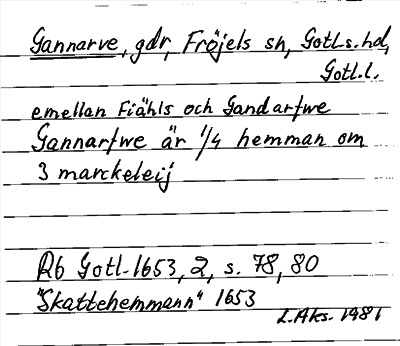 Gannarve, gdr, Fröjels sn, Gotl.s.hd,
Gotl.l.
emellan Fiähls och Gandarfwe
Gannarfwe är 1/4 hemman om
3 marckeleij
Rb Gotl. 1653, 2, s. 78, 80
"Skattehemmann" 1653
L.Aks. 1981